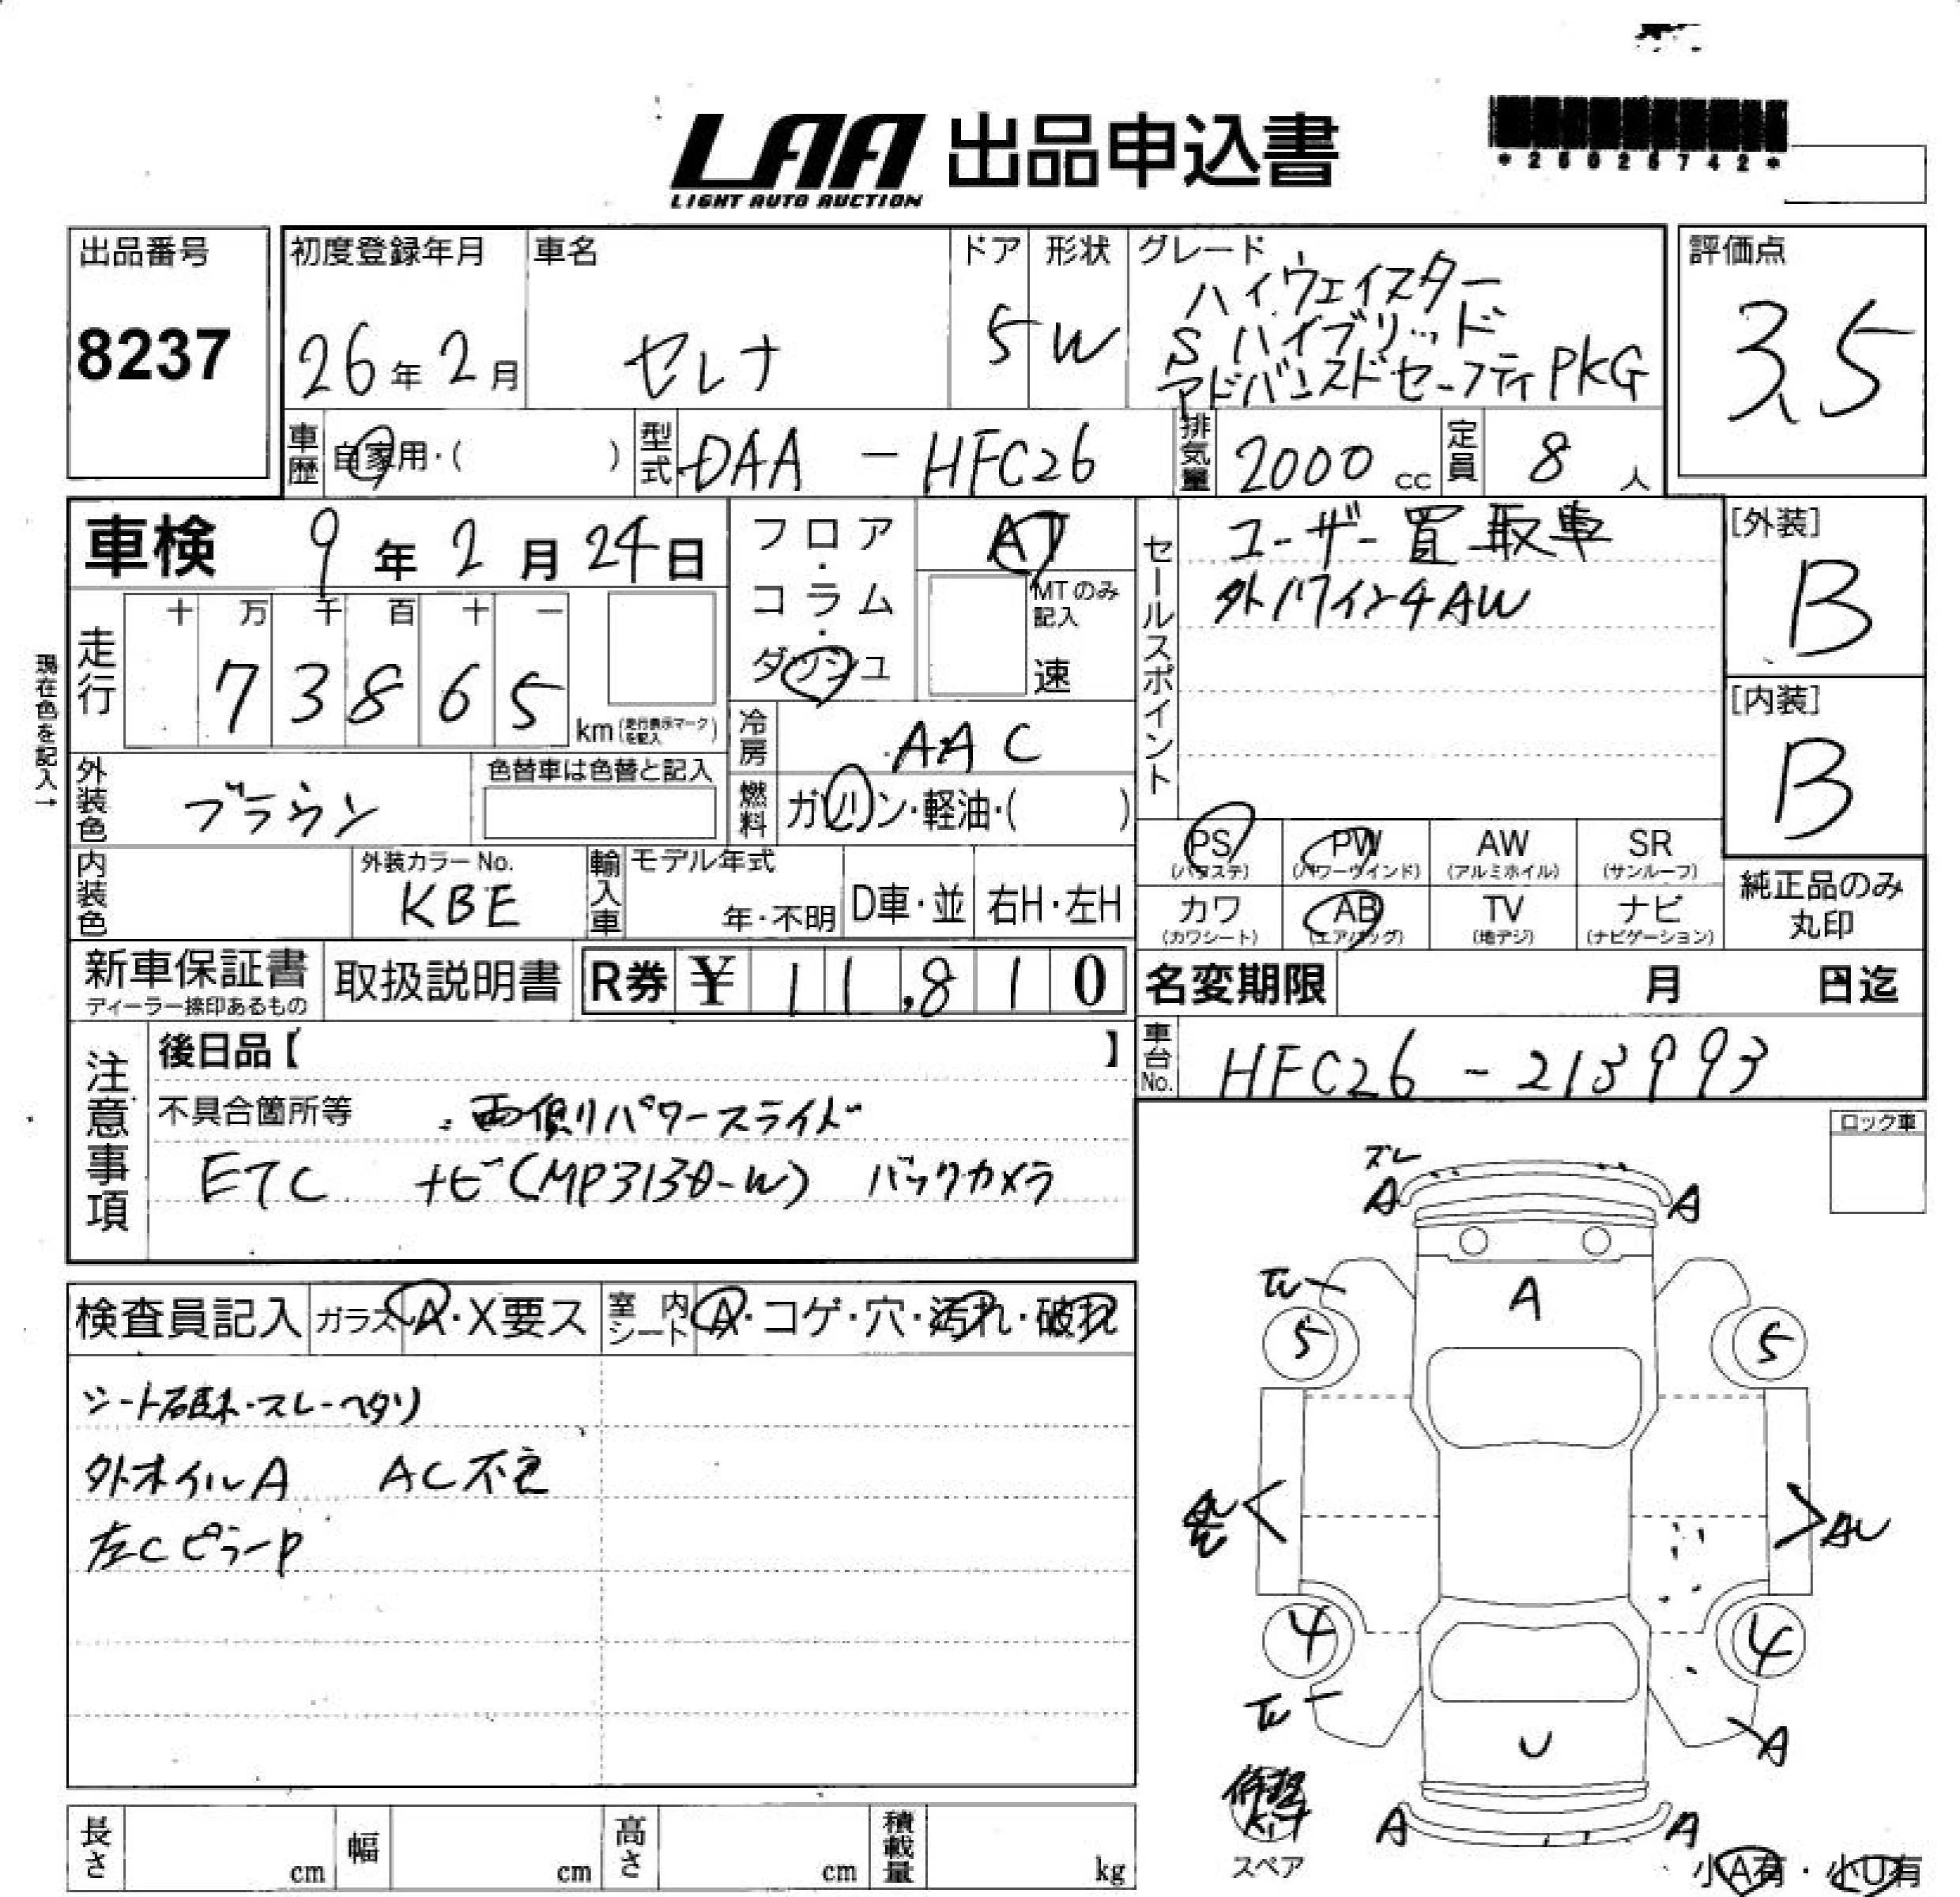 *26026742*
LAA 出品申込書
LIGHT AUTO AUCTION
出品番号
8237
初度登録年月
26年2月
車名
セレナ
ドア
5
形状
W
グレード
ハイウェイスター
S ハイブリッド
アドバンスドセーフティPKG
評価点
3.5
車歴
自家用・( )
型式
DAA - HFC26
排気量
2000 cc
定員
8 人
車検 9年2月24日
フロア・コラム・ダッシュ
AT
MTのみ記入
速
セールスポイント
ユーザー買取車
外17インチAW
[外装]
B
[内装]
B
現在色を記入→
走行
十 万 千 百 十 一
7 3 8 6 5
km(走行表示マークを記入)
冷房
AAC
外装色
ブラウン
色替車は色替と記入
燃料
ガソリン・軽油・( )
内装色
外装カラーNo.
KBE
輸入車
モデル年式
年・不明
D車・並
右H・左H
PS (パワステ)
PW (パワーウインド)
AW (アルミホイル)
SR (サンルーフ)
カワ (カワシート)
AB (エアバッグ)
TV (地デジ)
ナビ (ナビゲーション)
純正品のみ丸印
新車保証書
ディーラー捺印あるもの
取扱説明書
R券 ¥ 11,810
名変期限 月 日迄
車台No.
HFC26 - 213993
注意事項
後日品【 】
不具合箇所等 両側パワースライド
ETC ナビ(MP313D-W) バックカメラ
ロック車
検査員記入
ガラス A・X要ス
室内シート A・コゲ・穴・汚れ・破れ
シート破れ・スレ・ヘタリ
外ホイルA AC不良
左CピラーP
ズレ
A A
A
5 5
AU
4 4
A
U
A A
スペア
小A有・小U有
長さ cm
幅 cm
高さ cm
積載量 kg